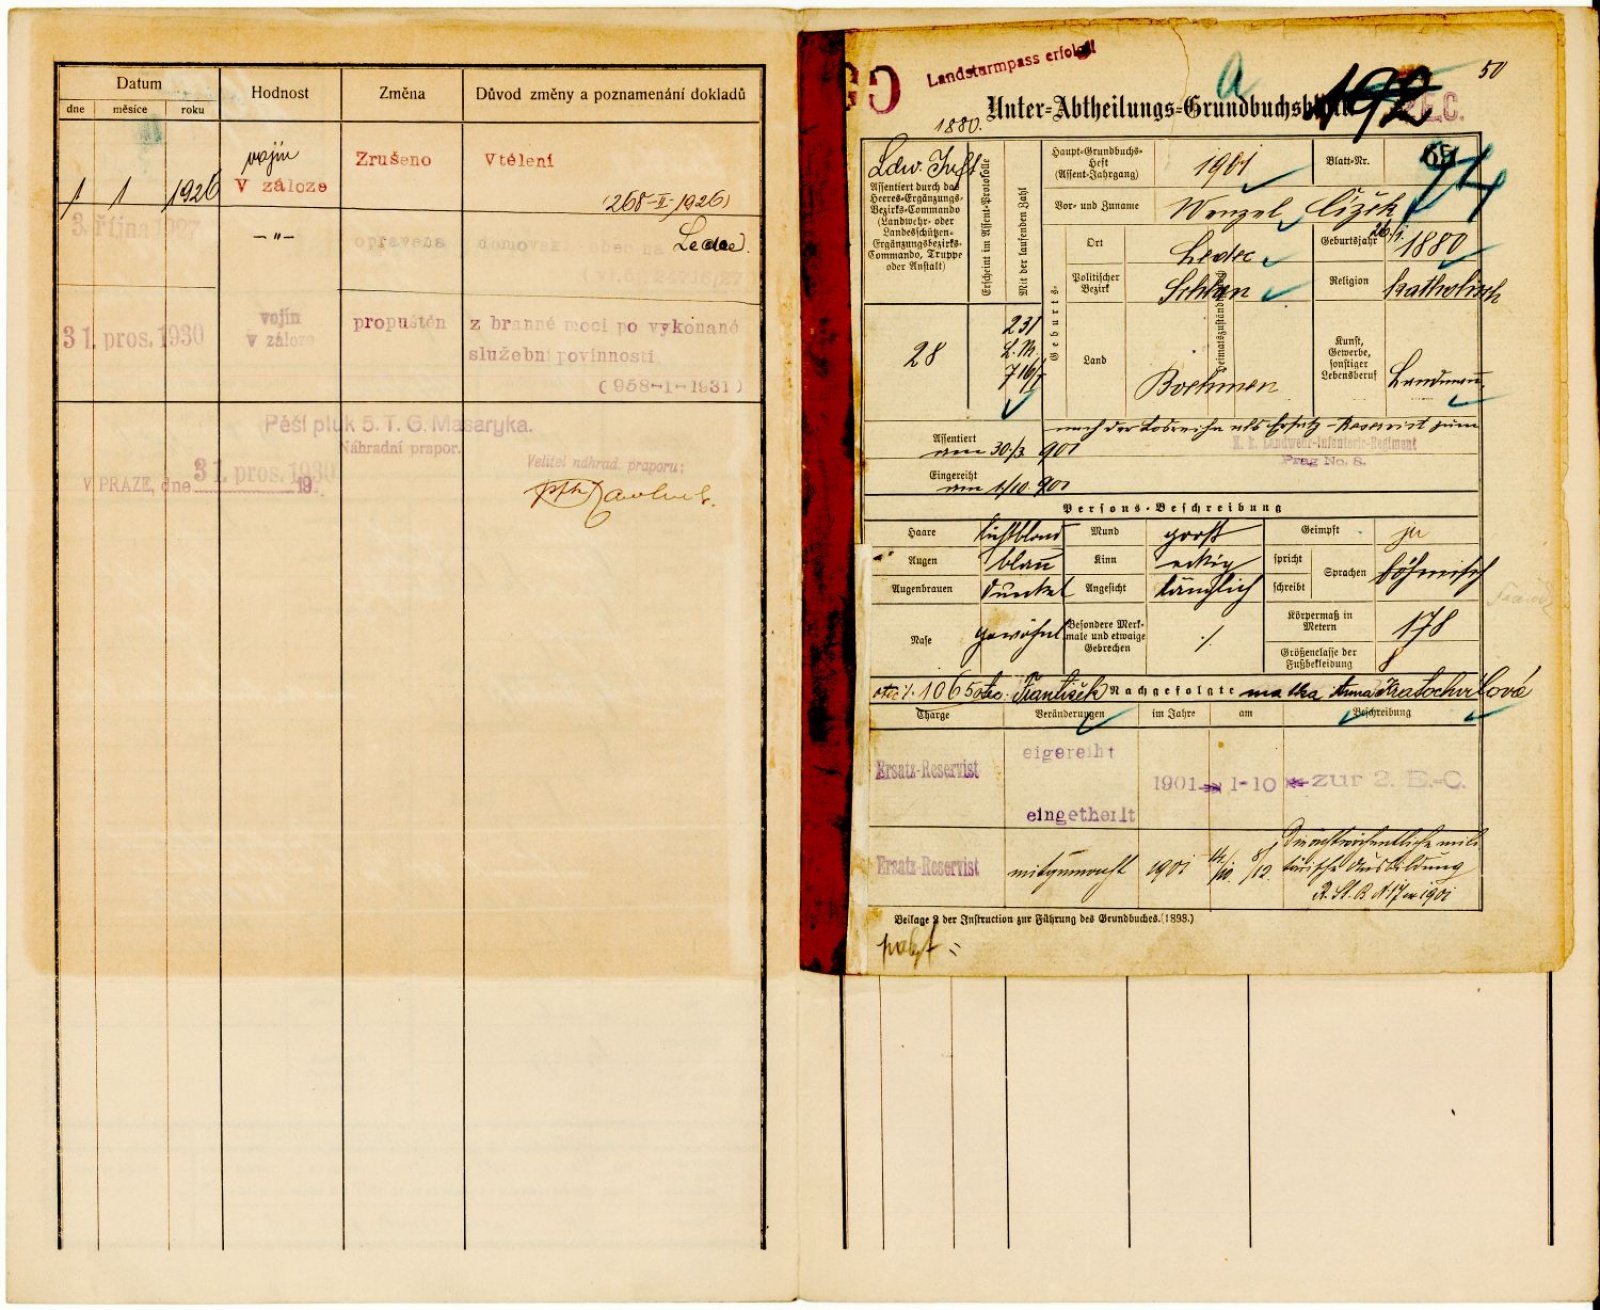 Datum
Hodnost
Změna
Důvod změny a poznamenání dokladů
dne
měsíce
roku
vojín
Zrušeno
Vtělení
1 1 1926
V záloze
(268-II-1926)
3. října 1927
—"—
opravena
domovsk. obec na Ledec.
31. pros. 1930
vojín
v záloze
propuštěn
z branné moci po vykonané
služební povinnosti
(958-1-1931)
Pěší pluk 5. T. G. Masaryka.
Náhradní prapor.
V PRAZE, dne 31. pros. 1930
19
Velitel náhrad. praporu:
Landsturmpass erfolgt!
a
192
50
Unter-Abtheilungs-Grundbuchsblatt
E.C.
1880.
Ldw. Inft
Assentiert durch das
Heeres-Ergänzungs-
Bezirks-Commando
(Landwehr- oder
Landesschützen-
Ergänzungsbezirks-
Commando, Truppe
oder Anstalt)
Erscheint im Assent-Protokolle
Mit der laufenden Zahl
28
231
716/I
Haupt-Grundbuchs-
Heft
(Assent-Jahrgang)
1901
Blatt-Nr.
65
Vor- und Zuname
Wenzel Čížek
Geburts-
Ort
Ledec
Geburtsjahr
26/9. 1880
Politischer
Bezirk
Schlan
Religion
katholisch
Heimatszuständigkeit
Land
Boehmen
Kunst,
Gewerbe,
sonstiger
Lebensberuf
Landmann
Assentiert
am 30/3 901
nach der Losreihe als Ersatz-Reservist zum
K. k. Landwehr-Infanterie-Regiment
Prag No. 8.
Eingereiht
am 1/10 901
Persons-Beschreibung
Haare
lichtblond
Mund
groß
Geimpft
ja
Augen
blau
Kinn
eckig
spricht
schreibt
Sprachen
böhmisch
Augenbrauen
dunkel
Angesicht
länglich
Nase
gewöhnl
Besondere Merk-
male und etwaige
Gebrechen
./.
Körpermaß in
Metern
178
Größenclasse der
Fußbekleidung
8
1065 otec: František Nachgefolgte matka Anna Kratochvilová
Charge
Veränderungen
im Jahre
am
Beschreibung
Ersatz-Reservist
eigereiht
eingetheilt
1901
1-10
zur 2. E.-C.
Ersatz-Reservist
mitgemacht
1901
14/10. 8/12.
Die achtwöchentliche mili
tärische Ausbildung
R. St. B. N 17 ex 1901
Beilage 2 der Instruction zur Führung des Grundbuches. (1898.)